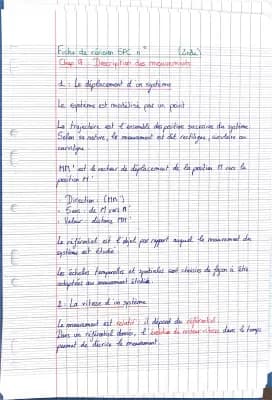 Fiche de révision SPC n° (2nde)
Chap 9 Description des mouvements
1: Le déplacement d'un système
Le système est modélisé par un point
La trajectoire est l'ensemble des positions successives du système
Selon sa nature, le mouvement est dit rectiligne, circulaire ou
curviligne
MM' est le vecteur de déplacement de la position M vers la
position M'
- Direction : (MM')
- Sens : de M vers M'
- Valeur : distance MM'
Le référentiel est l'objet par rapport auquel le mouvement du
système est étudié
Les échelles temporelles et spatiales sont choisies de façon à être
adaptées au mouvement étudié
2 : La vitesse d'un système
Le mouvement est relatif : il dépend du référentiel
Dans un référentiel donné, l'évolution du vecteur vitesse dans le temps
permet de décrire le mouvement.